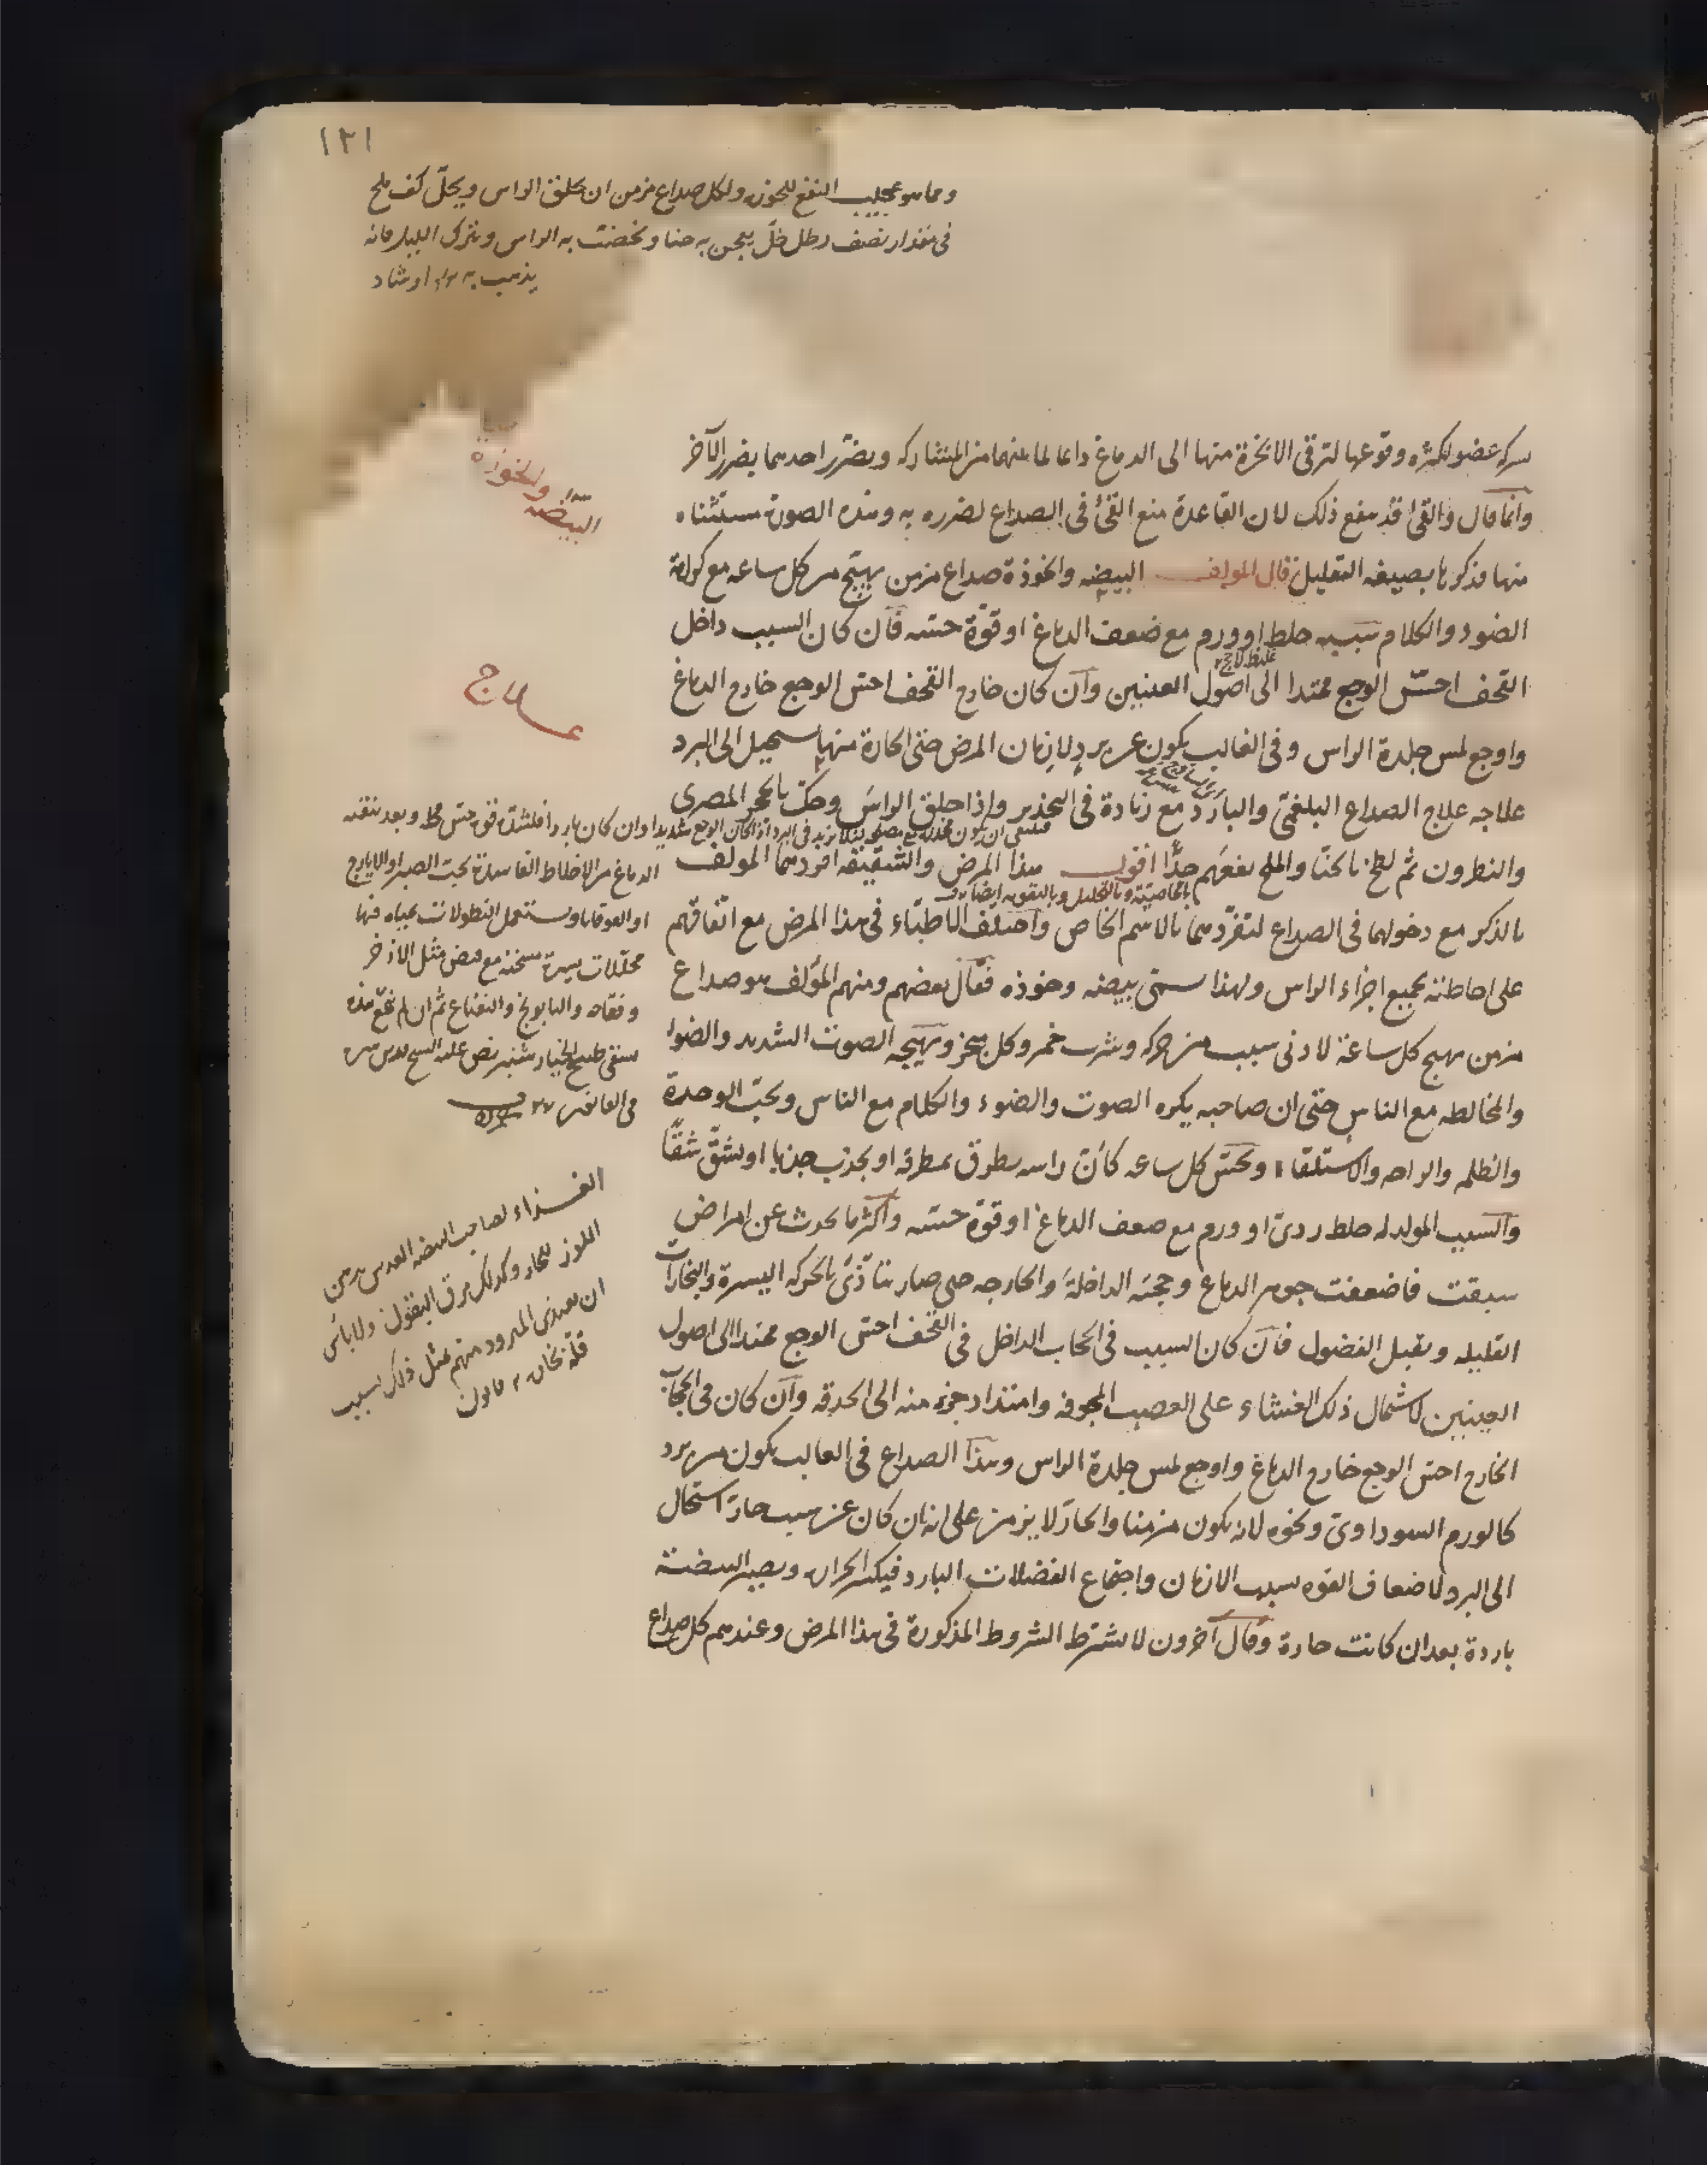 ١٣١
ومما هو عجيب النفع للخوذه ولكل صداع مزمن ان يحلق الراس ويحلّ كف ملح
فى مقدار نصف رطل خلّ يعجن به حنا وتخضب به الراس ويترك الليل فانه
يذهب به ارشاد
البيضه والخوذه
شركه عضو لكثره وقوعها لترقى الابخرة منها الى الدماغ دائما لما بينهما من المشاركه ويضرّ احدهما بضرر الآخر
وانما قال والقئ قد ينفع ذلك لان القاعدة منع القئ فى الصداع لضرره به وهذه الصورة مستثناه
منها فذكرها بصيغه التقليل قال المولف البيضه والخوذة صداع مزمن يهيج من كل ساعه مع كراهة
الضوء والكلام سببه خلط او ورم مع ضعف الدماغ او قوّة حسّه فان كان السبب داخل
القحف احسّ الوجع ممتدا الى اصول العينين وان كان خارج القحف احس الوجع خارج الدماغ
علاج
واوجع لمس جلدة الراس وفى الغالب يكون عن برد لازمان المرض حتى الحارة منها يستحيل الى البرد
علاجه علاج الصداع البلغمىّ والبارد مع زيادة فى التخدير واذا حلق الراس وحكّ بالحجر المصرى
والنطرون ثم لطخ بالحنّا والملح نفعهم جدًّا اقول هذا المرض والشقيقه افردهما المولف
بالخاصيّة وبالتحليل وبالتقويه ايضا
بالذكر مع دخولهما فى الصداع لتفرّدهما بالاسم الخاص واختلف الاطبّاء فى هذا المرض مع اتّفاقهم
على احاطته بجميع اجزاء الراس ولهذا سمّى بيضه وخوذه فقال بعضهم ومنهم المؤلف هو صداع
مزمن يهيج كل ساعة لادنى سبب من حركه وشرب خمر وكل مبخر ويهيّجه الصوت الشديد والضوء
والمخالطه مع الناس حتى ان صاحبه يكره الصوت والضوء والكلام مع الناس ويحبّ الوحدة
والظلمه والراحه والاستلقاء ويحسّ كل ساعه كانّ راسه يطرق بمطرقه او يجذب جذبا او يشقّ شقًّا
والسبب المولد له خلط ردىّ او ورم مع ضعف الدماغ او قوّة حسّه واكثر ما يحدث عن امراض
سبقت فاضعفت جوهر الدماغ وحجبه الداخلة والخارجه حتى صار يتاذّى بالحركه اليسيرة والبخارات
القليله ويقبل الفضول فان كان السبب فى الحجاب الداخل فى القحف احس الوجع ممتدا الى اصول
العينين لاشتمال ذلك الغشاء على العصب المجوفه وامتداد جزء منه الى الحدقه وان كان فى الحجاب
الخارج احس الوجع خارج الدماغ واوجع لمس جلدة الراس وهذا الصداع فى الغالب يكون من برد
كالورم السوداوىّ ونحوه لانه يكون مزمنا والحارّ لا يزمن على انه ان كان عن سبب حارّ استحال
الى البرد لاضعاف القوه بسبب الازمان واجتماع الفضلات البارد فيكسر الحراره ويصير البيضة
باردة بعد ان كانت حارة وقال آخرون لا يشترط الشروط المذكورة فى هذا المرض وعندهم كل صداع
وان كان باردا فلشدّة قوه حس وبعد تنقيه
الدماغ من الاخلاط الفاسدة بحبّ الصبر او الايارج
او القوقايا ويستعمل النطولات بمياه فيها
محلّلات يسيرة مسخنة مع قبض مثل الاذخر
وفقاحه والبابونج والنعناع ثم ان لم ينجّع هذه
يسقى طبيخ الخيار شنبر نص عليه الشيخ قدس سره
فى القانون
الغذاء لصاحب البيضه العدس بدهن
اللوز للحار وكذلك مرق البقول ولا باس
ان يغتذى المبرود منهم بمثل ذلك بسبب
قلّة بخاره قانون